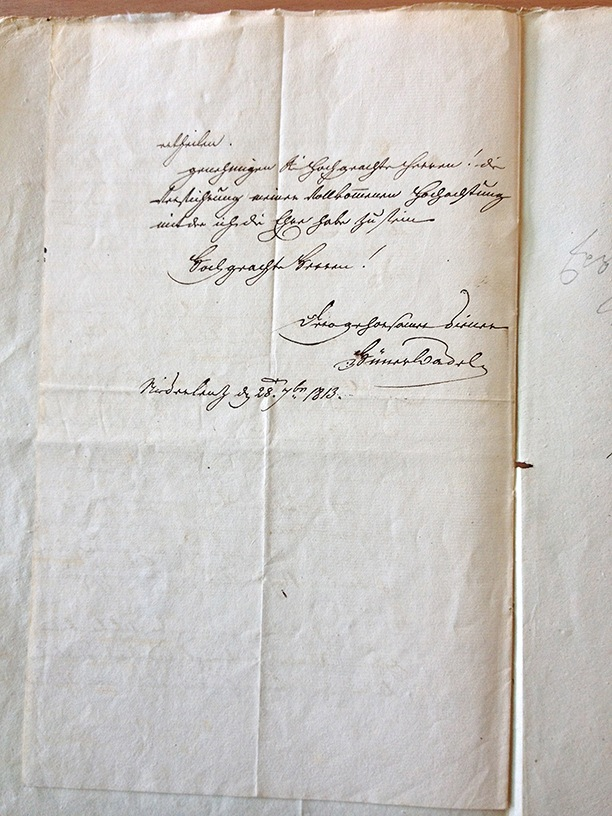 ertheilen.
genehmigen Sie Hochgeachte Herren! die
Versicherung meiner vollkommenen Hochachtung
mit der ich die Ehre habe zu sein
Hochgeachte Herren!
Dero gehorsamer Diener
Hünerwadel
Niederlenz den 28. 7br 1813.